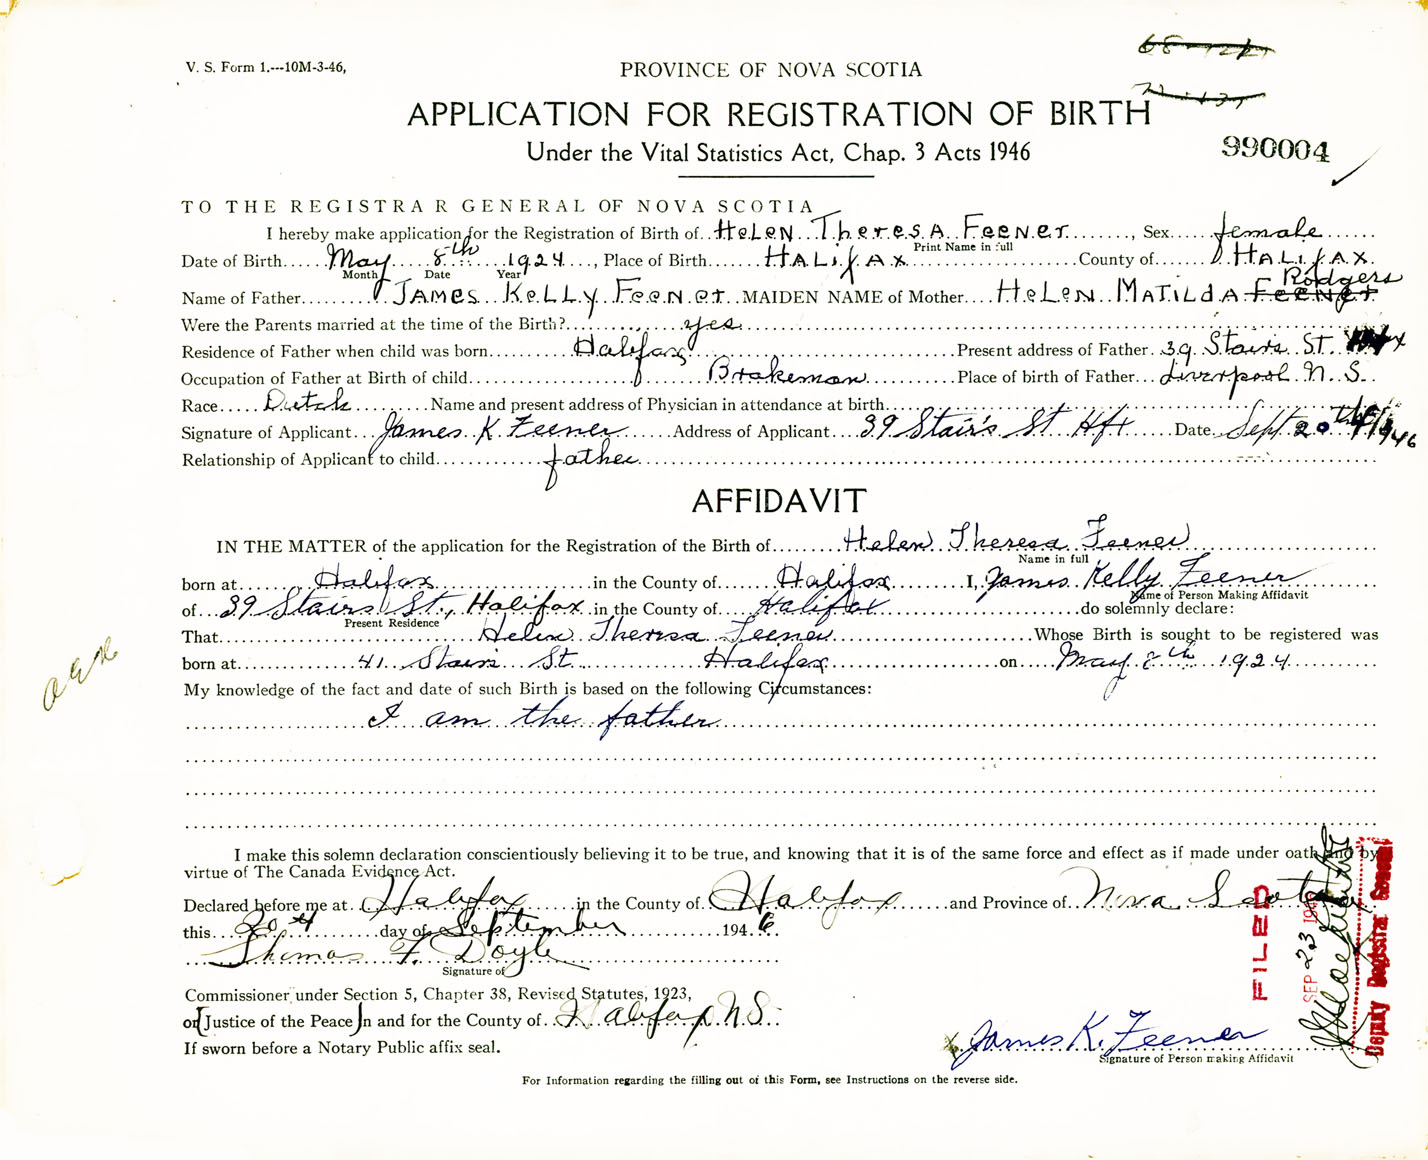 V. S. Form 1.---10M-3-46,
PROVINCE OF NOVA SCOTIA
APPLICATION FOR REGISTRATION OF BIRTH
Under the Vital Statistics Act, Chap. 3 Acts 1946
990004
TO THE REGISTRAR GENERAL OF NOVA SCOTIA
I hereby make application for the Registration of Birth of Helen Theresa Feener, Sex female
Print Name in full
Date of Birth May 8th 1924, Place of Birth Halifax County of Halifax
Month Date Year
Rodgers
Name of Father James Kelly Feener MAIDEN NAME of Mother Helen Matilda Feener
Were the Parents married at the time of the Birth? yes
Residence of Father when child was born Halifax Present address of Father 39 Stairs St.
Occupation of Father at Birth of child Brakeman Place of birth of Father Liverpool N. S.
Race Dutch Name and present address of Physician in attendance at birth
Signature of Applicant James K Feener Address of Applicant 39 Stair's St Hfx Date Sept 20th 1946
Relationship of Applicant to child father
AFFIDAVIT
IN THE MATTER of the application for the Registration of the Birth of Helen Theresa Feener
Name in full
born at Halifax in the County of Halifax I, James Kelly Feener
Name of Person Making Affidavit
of 39 Stairs St., Halifax in the County of Halifax do solemnly declare:
Present Residence
That Helen Theresa Feener Whose Birth is sought to be registered was
born at 41 Stairs St. Halifax on May 8th 1924
My knowledge of the fact and date of such Birth is based on the following Circumstances:
I am the father
I make this solemn declaration conscientiously believing it to be true, and knowing that it is of the same force and effect as if made under oath and by
virtue of The Canada Evidence Act.
Declared before me at Halifax in the County of Halifax and Province of Nova Scotia
this 20th day of September 1946
Thomas F. Doyle
Signature of
Commissioner under Section 5, Chapter 38, Revised Statutes, 1923,
or [Justice of the Peace] in and for the County of Halifax N.S.
If sworn before a Notary Public affix seal.
James K. Feener
Signature of Person making Affidavit
For Information regarding the filling out of this Form, see Instructions on the reverse side.
FILED
SEP 23 1946
Deputy Registrar General